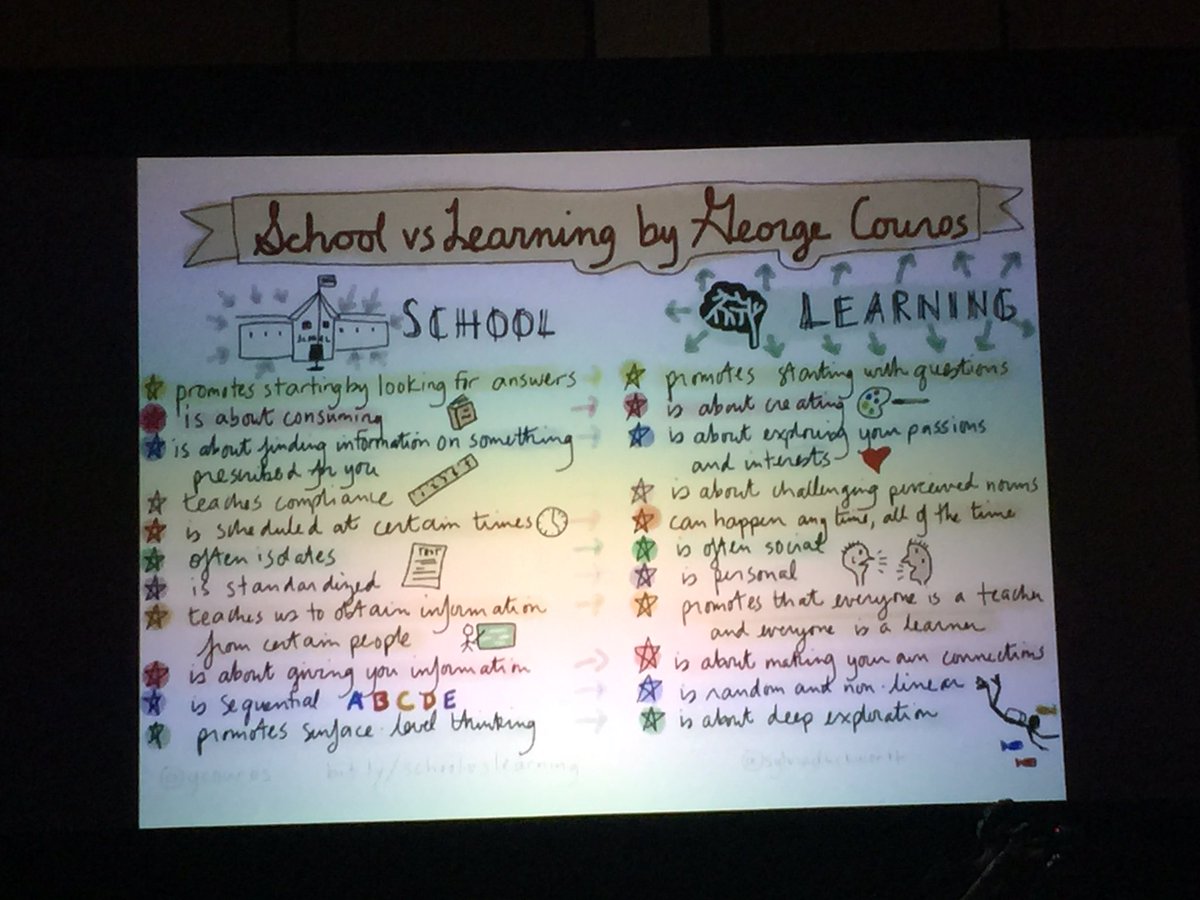 School vs Learning by George Couros
SCHOOL
promotes starting by looking for answers
is about consuming
is about finding information on something
prescribed for you
teaches compliance
is scheduled at certain times
often isolates
TEST
is standardized
teaches us to obtain information
from certain people
is about giving you information
is sequential A B C D E
promotes surface-level thinking
@gcouros bit.ly/schoolvslearning
LEARNING
promotes starting with questions
is about creating
is about exploring your passions
and interests
is about challenging perceived norms
can happen any time, all of the time
is often social
is personal
promotes that everyone is a teacher
and everyone is a learner
is about making your own connections
is random and non-linear
is about deep exploration
@sylviaduckworth